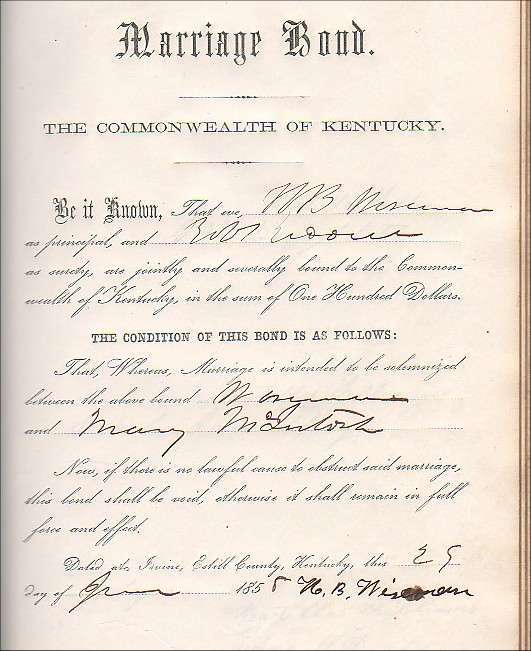 Marriage Bond.
THE COMMONWEALTH OF KENTUCKY.
Be it Known, That we, W B Wiseman
as principal, and
as surety, are jointly and severally bound to the Common-
wealth of Kentucky, in the sum of One Hundred Dollars.
THE CONDITION OF THIS BOND IS AS FOLLOWS:
That, Whereas, Marriage is intended to be solemnized
between the above bound Wiseman
and Mary McIntosh
Now, if there is no lawful cause to obstruct said marriage,
this bond shall be void, otherwise it shall remain in full
force and effect.
Dated at Irvine, Estill County, Kentucky, this 29
day of 185 W. B. Wiseman